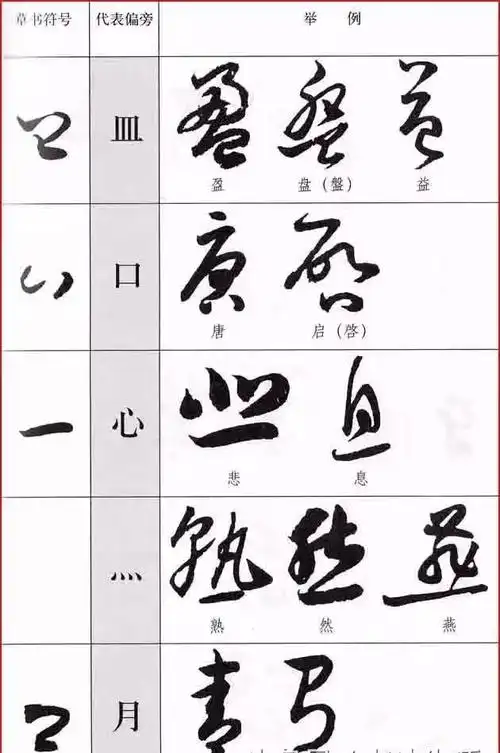 草书符号 代表偏旁 举例
皿
盈 盘（盤） 益
口
唐 启（啓）
心
悲 息
灬
熟 然 燕
月